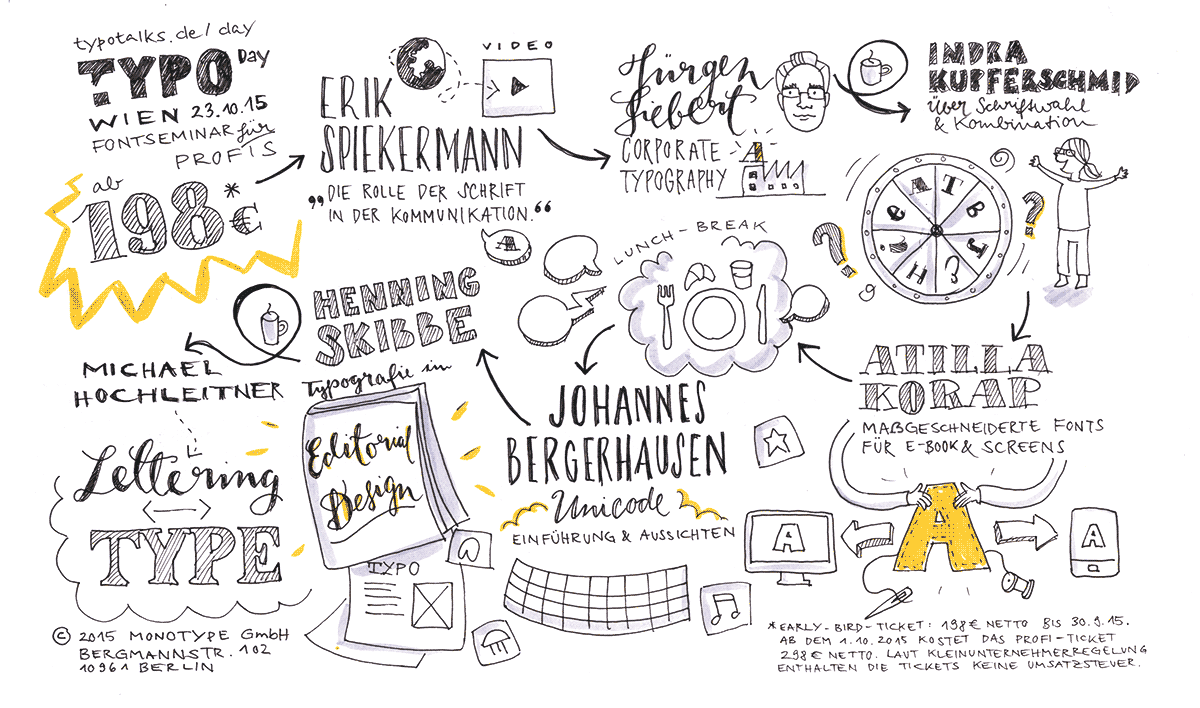 typotalks.de/day
TYPO Day
WIEN 23.10.15
FONTSEMINAR für
PROFIS
ab
198*€
ERIK
SPIEKERMANN
„DIE ROLLE DER SCHRIFT
IN DER KOMMUNIKATION.“
VIDEO
Jürgen
Siebert
CORPORATE
TYPOGRAPHY
A
INDRA
KUPFERSCHMID
über Schriftwahl
& Kombination
A T B J ? H e
? ?
ATILLA
KORAP
MAßGESCHNEIDERTE FONTS
FÜR E-BOOK & SCREENS
A
A
A
LUNCH-BREAK
A
JOHANNES
BERGERHAUSEN
Unicode
EINFÜHRUNG & AUSSICHTEN
HENNING
SKIBBE
Typografie im
Editorial
Design
TYPO
MICHAEL
HOCHLEITNER
Lettering
TYPE
© 2015 MONOTYPE GmbH
BERGMANNSTR. 102
10961 BERLIN
*EARLY-BIRD-TICKET: 198€ NETTO BIS 30.9.15.
AB DEM 1.10.2015 KOSTET DAS PROFI-TICKET
298€ NETTO. LAUT KLEINUNTERNEHMERREGELUNG
ENTHALTEN DIE TICKETS KEINE UMSATZSTEUER.